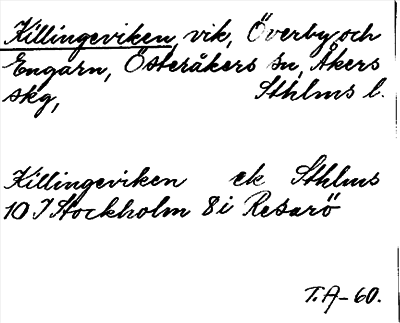 Killingeviken, vik, Överby och
Engarn, Österåkers sn, Åkers
skg, Sthlms l.
Killingeviken ek Sthlms
10 I Stockholm 8 i Resarö
T.A-60.